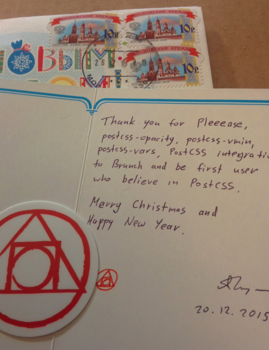 10р
10р
НОВЫМ
10р
Thank you for Pleeease,
postcss-opacity, postcss-vmin,
postcss-vars, PostCSS integratio
to Brunch and be first user
who believe in PostCSS.
Merry Christmas and
Happy New Year.
20.12.2015